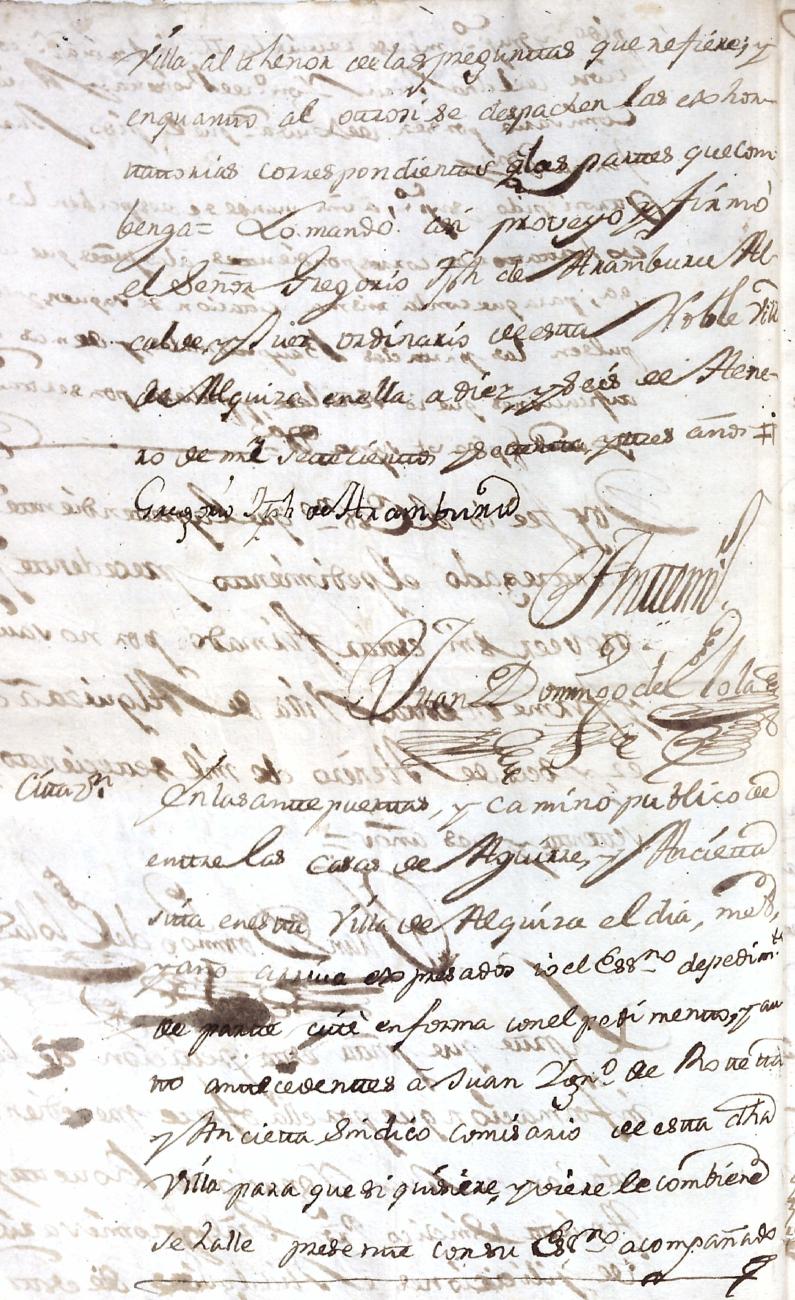 Villa al thenor de las preguntas que refiere; y
enquanto al otrosi se despachen las exhor-
tatorias correspondientes a las partes que com
benga= Lo mando asi proveyo y firmó
el Señor Gregorio Jph de Aramburu Al-
calde, y Juez ordinario de esta Noble Villa
de Alquiza en ella a diez y seis de Hene-
ro de mil setecientos y setenta y tres años
Gregorio Jph de Aramburu
Antemi
Juan Domingo de Elola
Citaz.n
En las ante puertas, y camino publico de
entre las casas de Aguirre, y Ancieta
sita en esta Villa de Alquiza el dia, mes,
y año arriva expresados io el Ess.no de pedim.to
de parte cité en forma con el pedimento, y au
to antecedentes â Juan Ign.o de Rotteta
y Ancieta Sindico comisario de esta dha
Villa para que si quisiere, y viere le combiene
se halle presente con su Ess.no acompañado